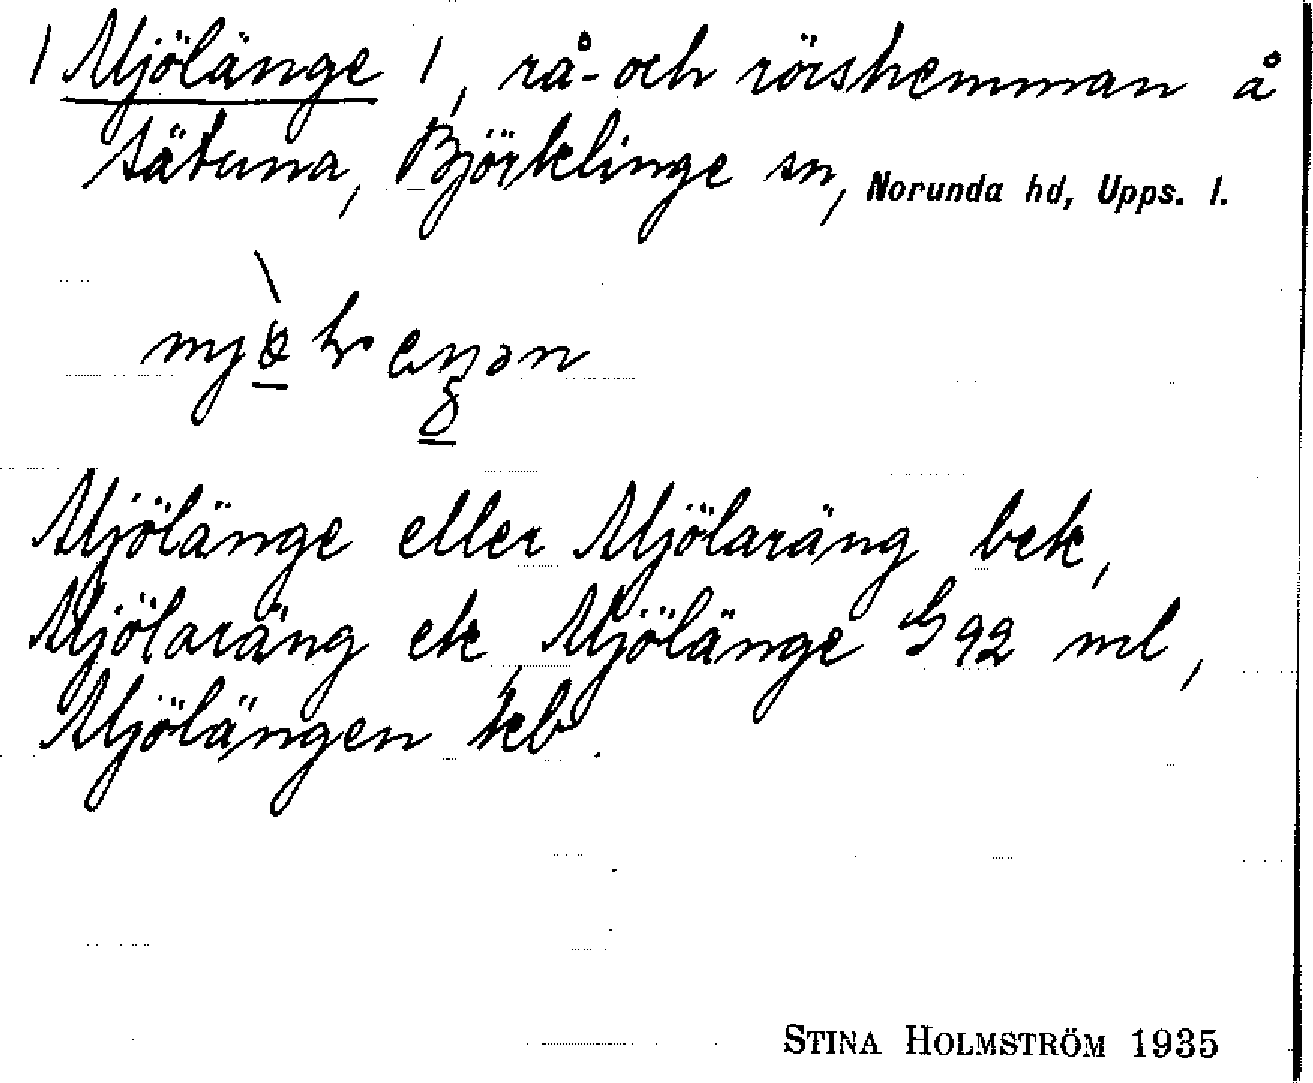 / Mjölänge /, rå- och rörshemman å
Sätuna, Björklinge sn, Norunda hd, Upps. l.
Mjölänge eller Mjölaräng bek,
Mjölaräng ek, Mjölänge G 92 ml,
Mjölängen kb.
STINA HOLMSTRÖM 1935